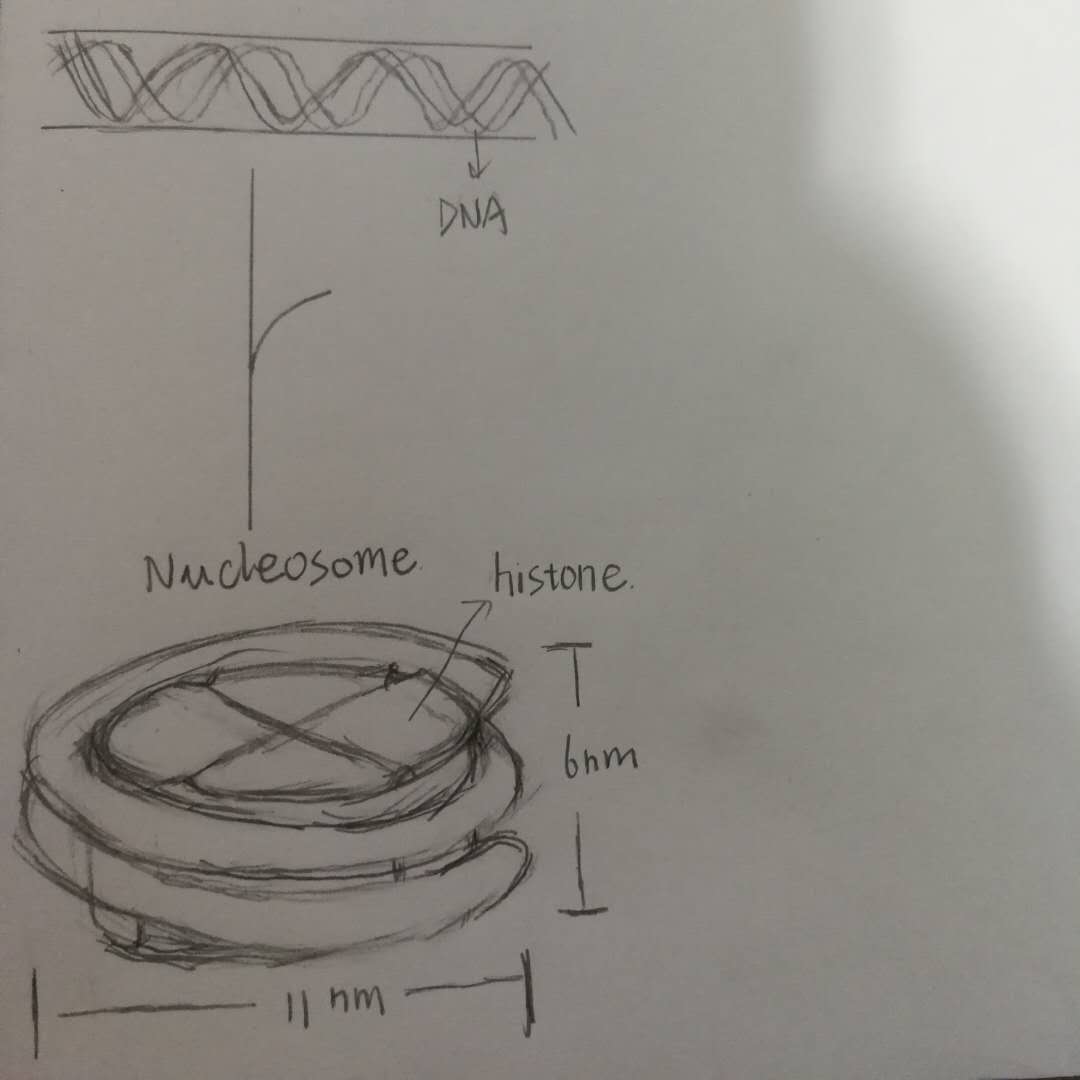 DNA
Nucleosome.
histone.
6nm
11 nm